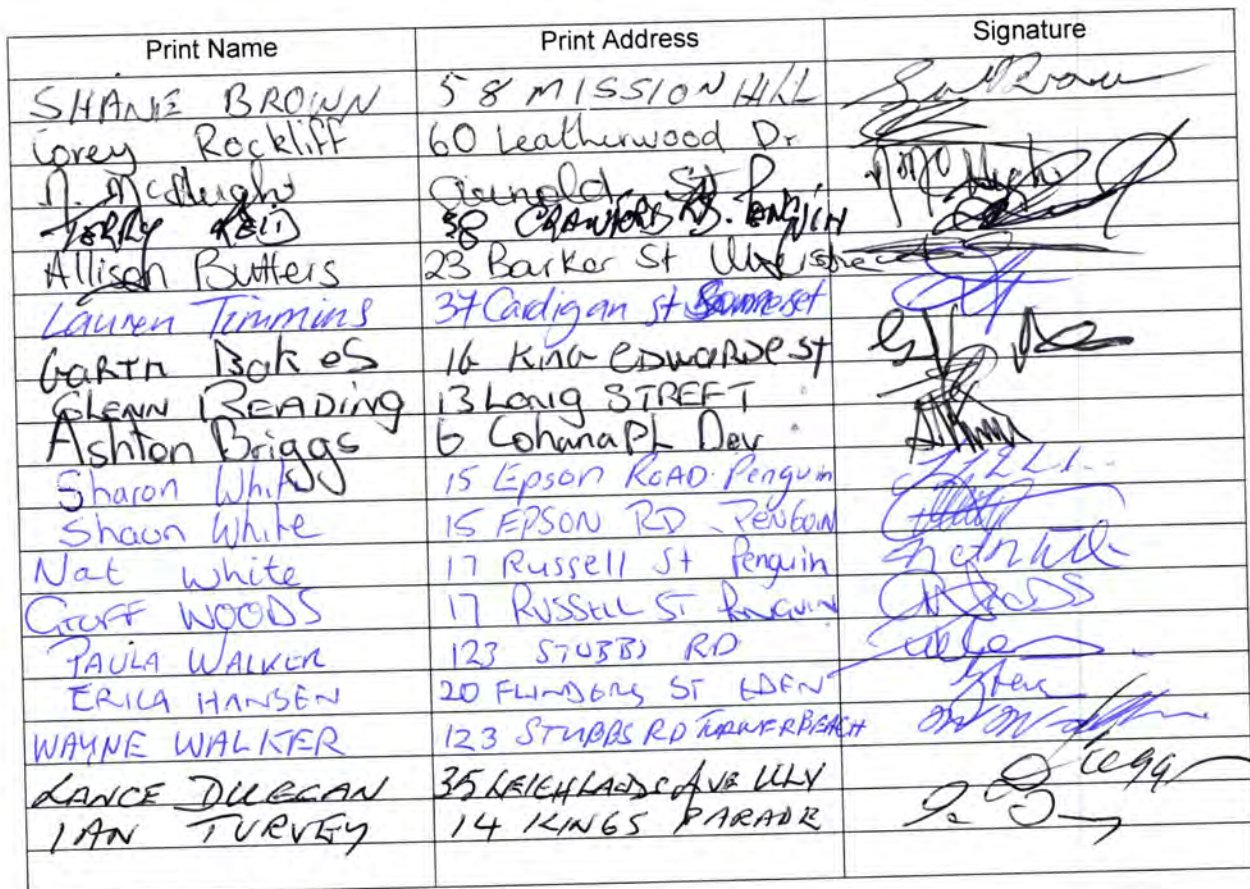 Print Name Print Address Signature
SHANE BROWN 58 MISSION HILL
Corey Rockliff 60 Leatherwood Dr
N. McHugh Arnold St Penguin
TERRY REID 38 CRAWFORD RD. PENGUIN
Allison Butters 23 Barker St Ulverstone
Lauren Timmins 37 Cardigan St Somerset
GARTH Bakes 16 KING EDWARDE ST
GLENN READING 13 Long STREET
Ashton Briggs 6 Cohana Pl Dev
Sharon White 15 Epson ROAD. Penguin
Shaun White 15 EPSON RD PENGUIN
Nat White 17 Russell St Penguin
GEOFF WOODS 17 RUSSELL ST PENGUIN
PAULA WALKER 123 STUBBS RD
ERICA HANSEN 20 FLINDERS ST EDEN
WAYNE WALKER 123 STUBBS RD TURNERBEACH
LANCE 35 AVE ULV
IAN TURVEY 14 KINGS PARADE